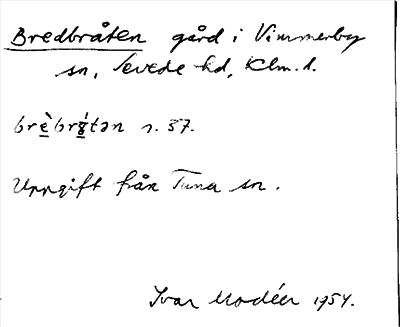 Bredbråten gård i Vimmerby
sn, Sevede hd, Klm. l.
brè̲brɣ̲́tən n. 37.
Uppgift från Tuna sn.
Ivar Modéer 1954.